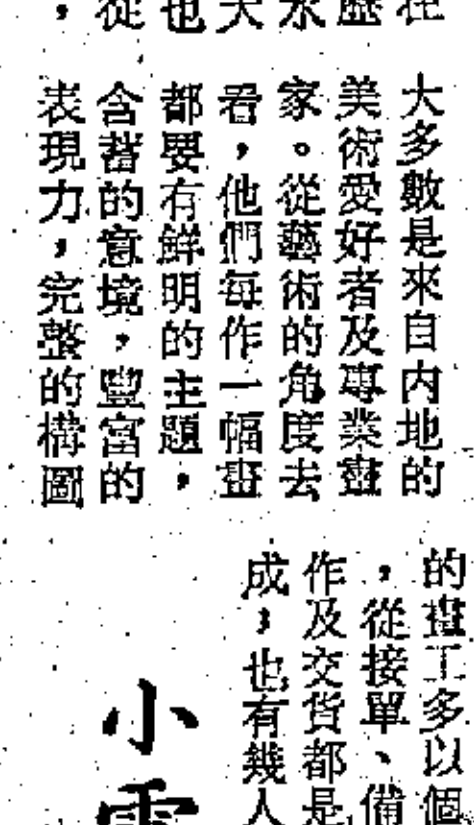 大多數是來自内地的
美術愛好者及專業畫
家。從藝術的角度去
看，他們每作一幅畫
都要有鮮明的主題，
含蓄的意境，豐富的
表現力，完整的構圖
的畫工多以個
，從接單、備
作及交貨都是
成，也有幾人
小